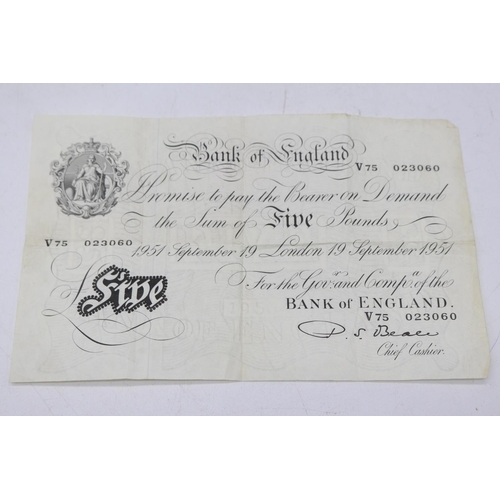 Bank of England
V75 023060
I Promise to pay the Bearer on Demand
the Sum of Five Pounds
V75 023060
1951 September 19 London 19 September 1951
For the Govr. and Compa. of the
BANK of ENGLAND.
V75 023060
£Five
P. S. Beale
Chief Cashier.